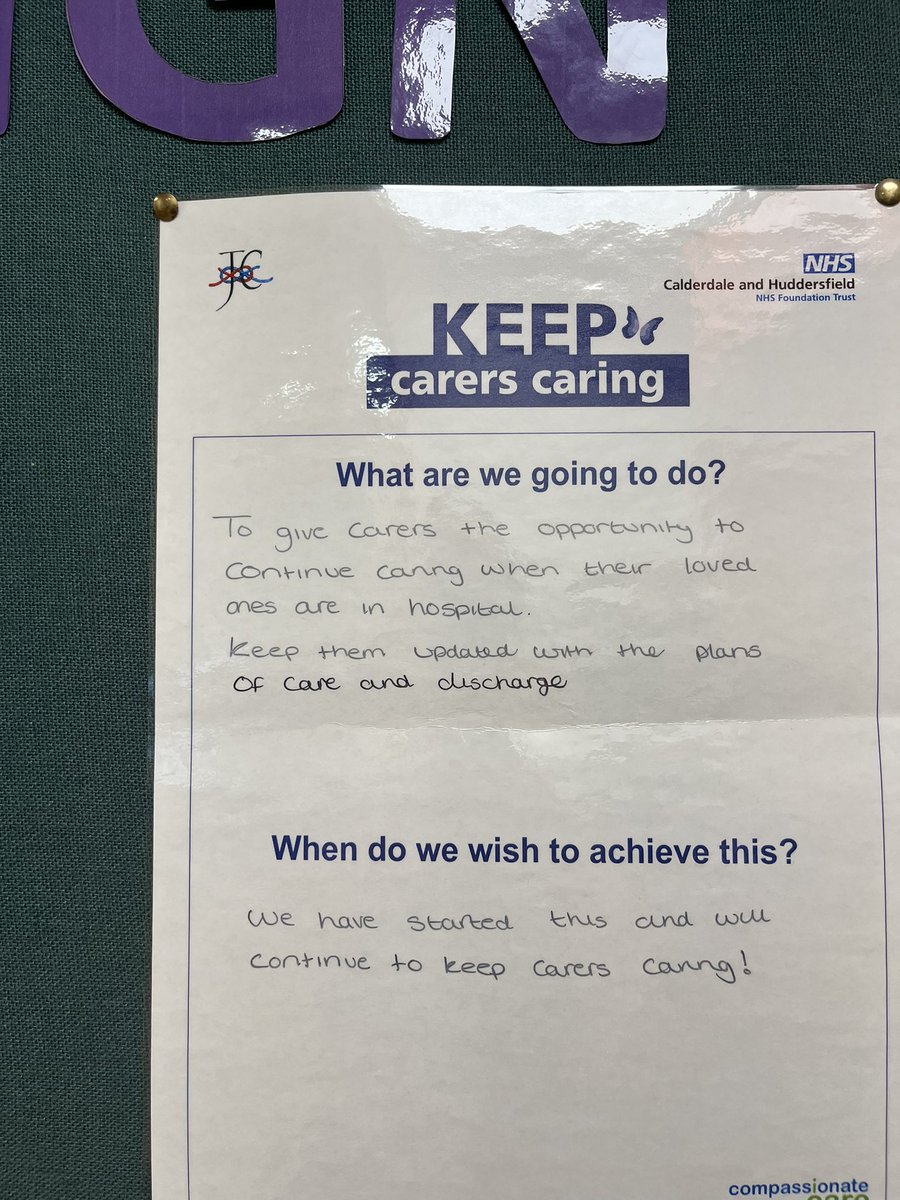 GN
JC
NHS
Calderdale and Huddersfield
NHS Foundation Trust
KEEP
carers caring
What are we going to do?
To give carers the opportunity to
continue caring when their loved
ones are in hospital.
Keep them updated with the plans
of care and discharge
When do we wish to achieve this?
We have started this and will
continue to keep carers caring!
compassionate
care